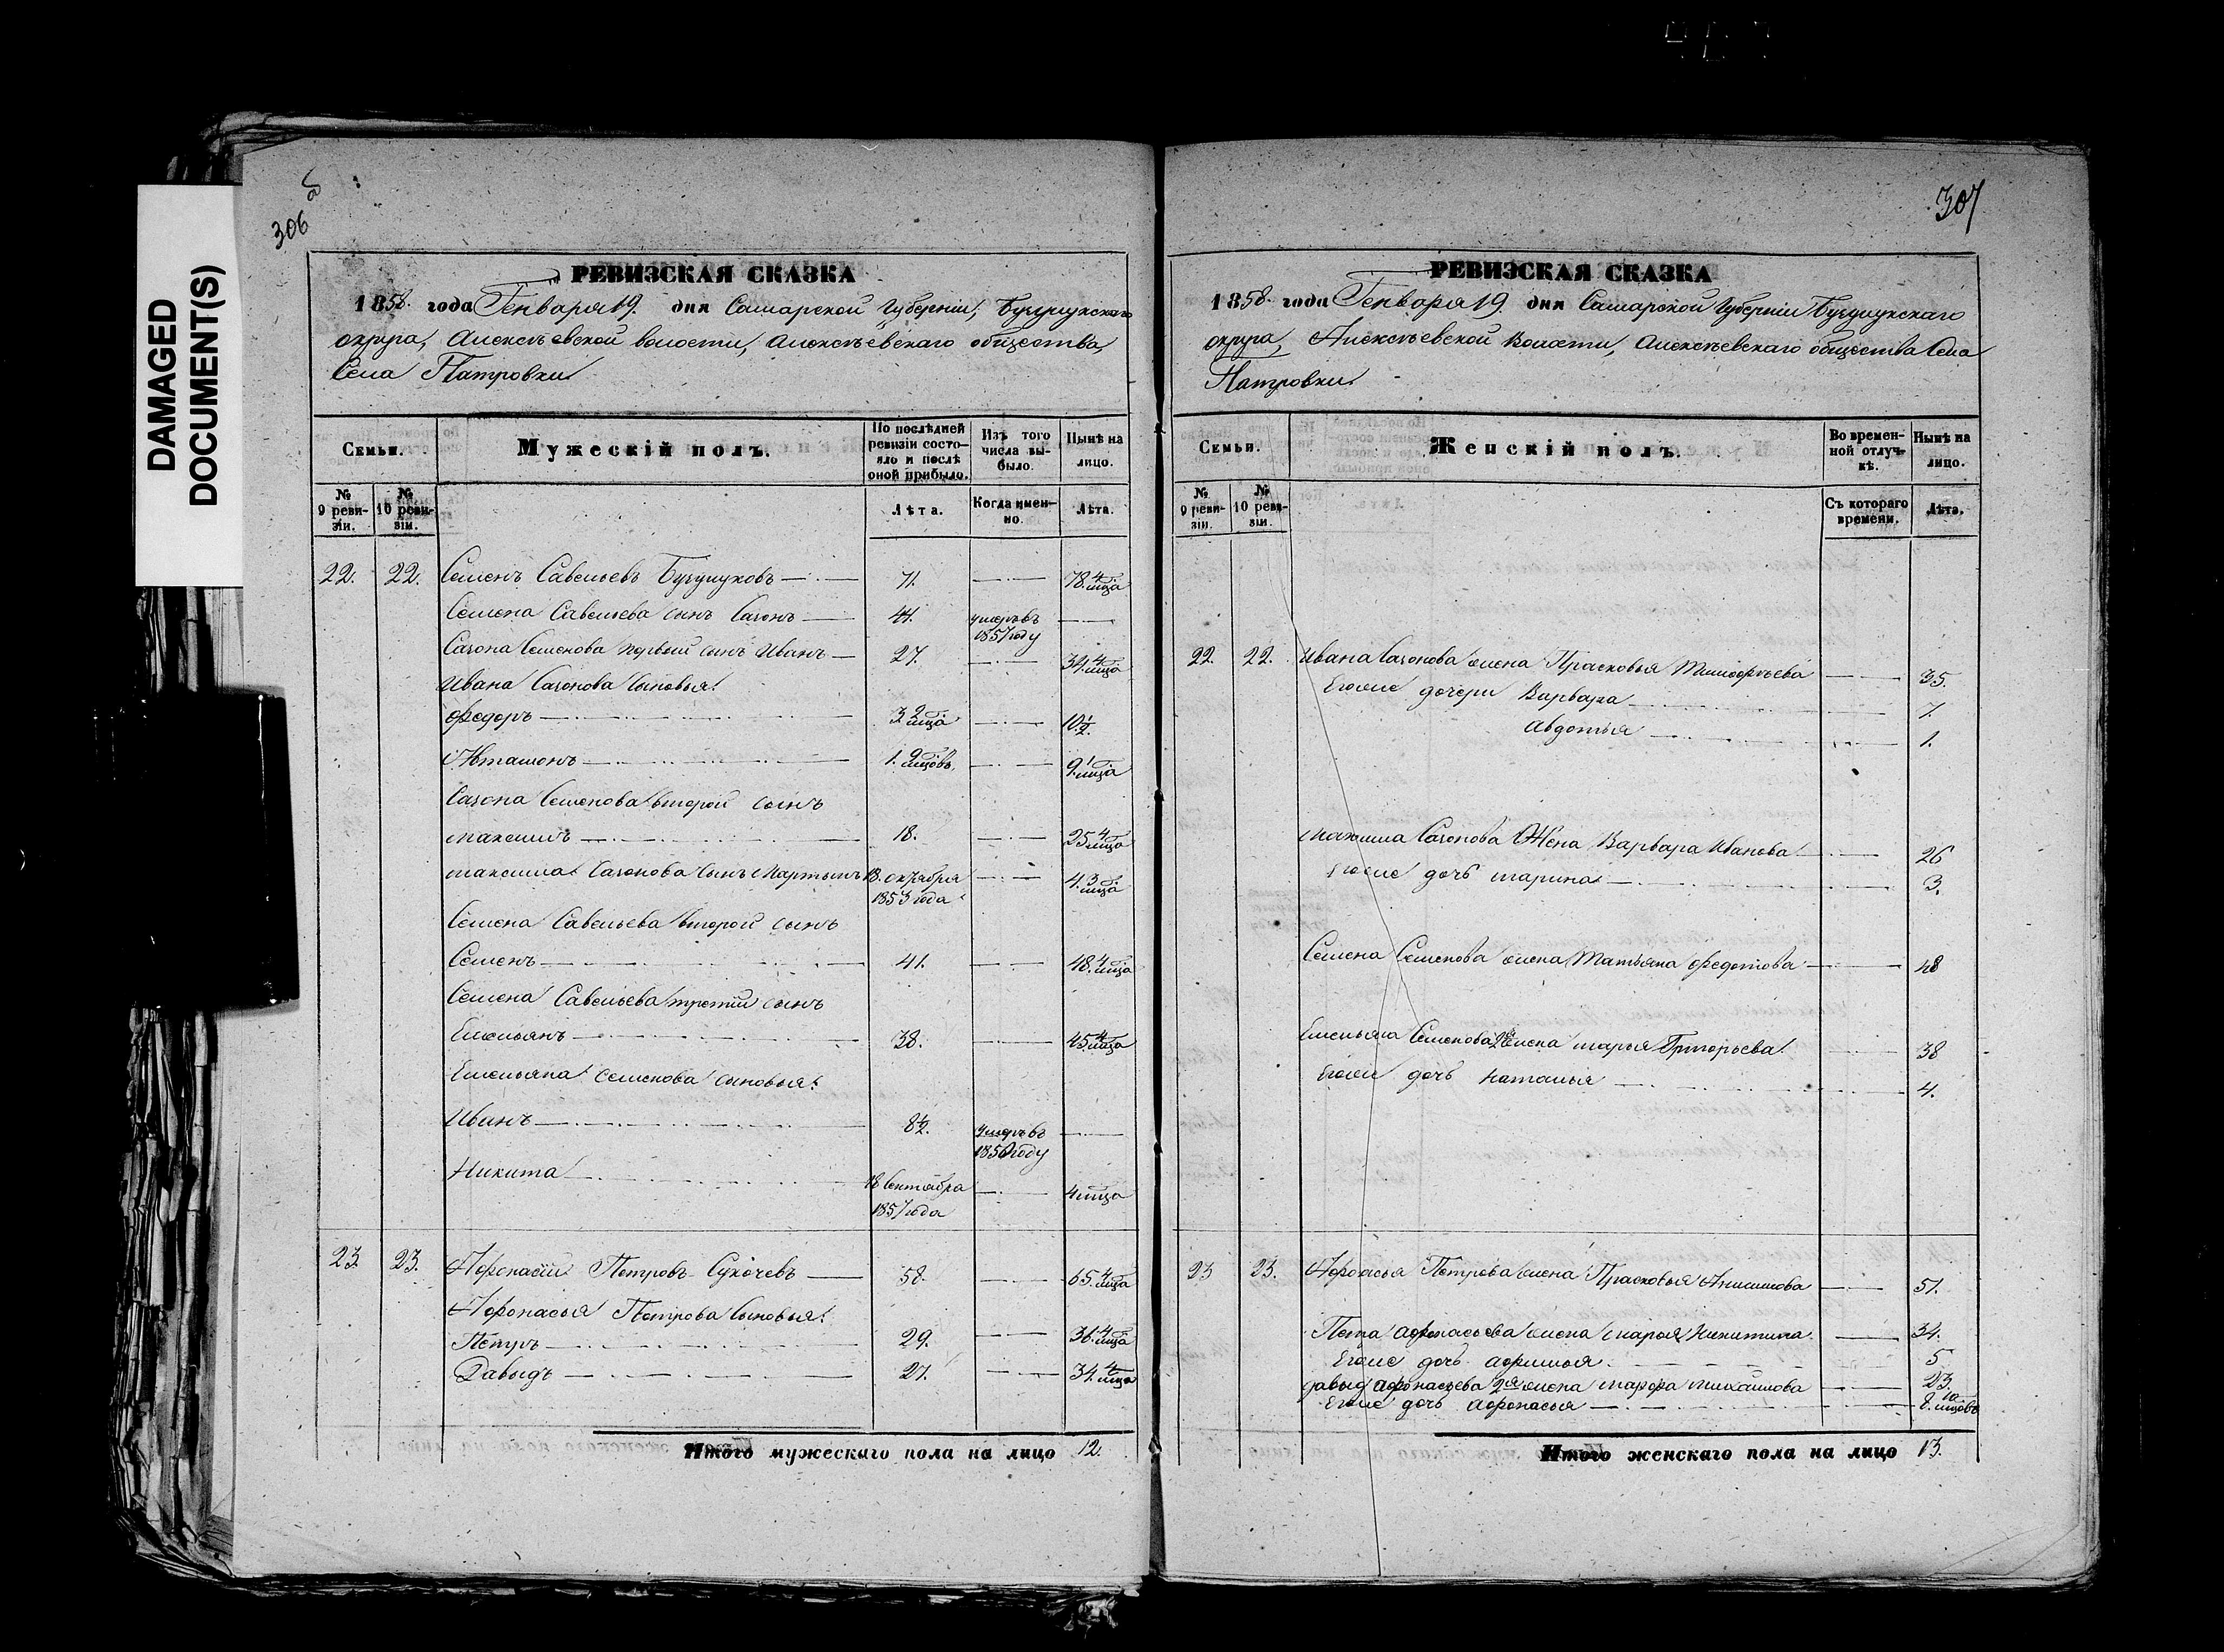 DAMAGED
DOCUMENT(S)
306
РЕВИЗСКАЯ СКАЗКА
1858. года Генваря 19. дня Самарской Губерніи, Бузулукскаго
округа, Алексѣевской волости, Алексѣевскаго общества,
Села Патровки
Семьи.
Мужескій полъ.
По послѣдней ревизіи состо-
яло и послѣ оной прибыло.
Изъ того числа вы-
было.
Нынѣ на лицо.
№ 9 реви-
зіи.
№ 10 реви-
зіи.
Лѣта.
Когда имен-
но.
Лѣта.
22. 22. Семенъ Савельевъ Бузулуковъ 71. 78. 4 мца
Семена Савельева сынъ Сазонъ 44. умеръ въ 1857 году
Сазона Семенова первый сынъ Иванъ 27. 34. 4 мца
Ивана Сазонова сыновья:
Федоръ 3. 2 мца 10½
Автамонъ 1. 9 мцовъ 9. 1 мца
Сазона Семенова второй сынъ
Максимъ 18. 25. 4 мца
Максима Сазонова сынъ Мартынъ 13. октября 1853 года 4. 3 мца
Семена Савельева второй сынъ
Семенъ 41. 48. 4 мца
Семена Савельева третій сынъ
Емельянъ 38. 45. 4 мца
Емельяна Семенова сыновья:
Иванъ 8½. умеръ въ 1850 году
Никита 18 Сентября 1857 года 4 мца
23. 23. Афонасій Петровъ Сукочевъ 58. 65. 4 мца
Афонасья Петрова сыновья:
Петръ 29. 36. 4 мца
Давыдъ 27. 34. 4 мца
Итого мужескаго пола на лицо 12.
307
РЕВИЗСКАЯ СКАЗКА
1858. года Генваря 19. дня Самарской Губерніи Бузулукскаго
округа, Алексѣевской волости, Алексѣевскаго общества Села
Патровки.
Семьи.
Женскій полъ.
Во времен-
ной отлуч-
кѣ.
Нынѣ на лицо.
№ 9 реви-
зіи.
№ 10 реви-
зіи.
Съ котораго времени.
Лѣта.
22. 22. Ивана Сазонова жена Прасковья Тимофѣева 35.
Егоже дочери Варвара 7.
Авдотья 1.
Максима Сазонова Жена Варвара Иванова 26
Егоже дочь Марина 3.
Семена Семенова жена Татьяна Федотова 48
Емельяна Семенова 2я жена Марья Григорьева 38
Егоже дочь Наталья 4.
23 23. Афонасья Петрова жена Прасковья Анисимова 51.
Петра Афонасьева жена Марья Никитина 34.
Егоже дочь Афимья 5
Давыда Афонасьева 2я жена Марфа Михайлова 23
Егоже дочь Афонасья 8. мцовъ
Итого женскаго пола на лицо 13.